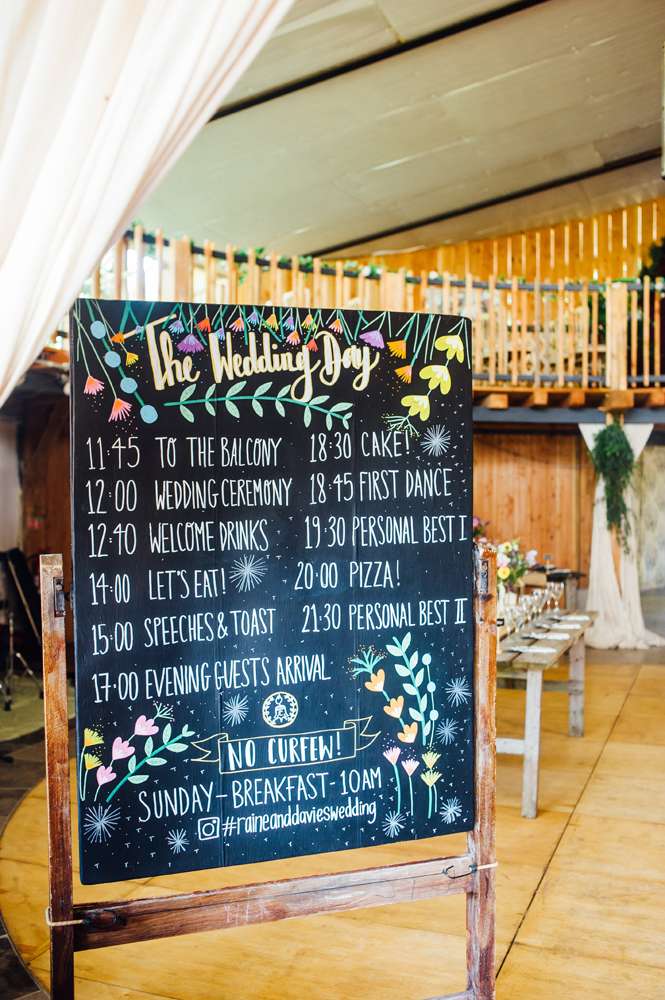 The Wedding Day
11:45 TO THE BALCONY
12:00 WEDDING CEREMONY
12:40 WELCOME DRINKS
14:00 LET'S EAT!
15:00 SPEECHES & TOAST
17:00 EVENING GUESTS ARRIVAL
18:30 CAKE!
18:45 FIRST DANCE
19:30 PERSONAL BEST I
20:00 PIZZA!
21:30 PERSONAL BEST II
NO CURFEW!
SUNDAY - BREAKFAST - 10AM
#raineanddavieswedding